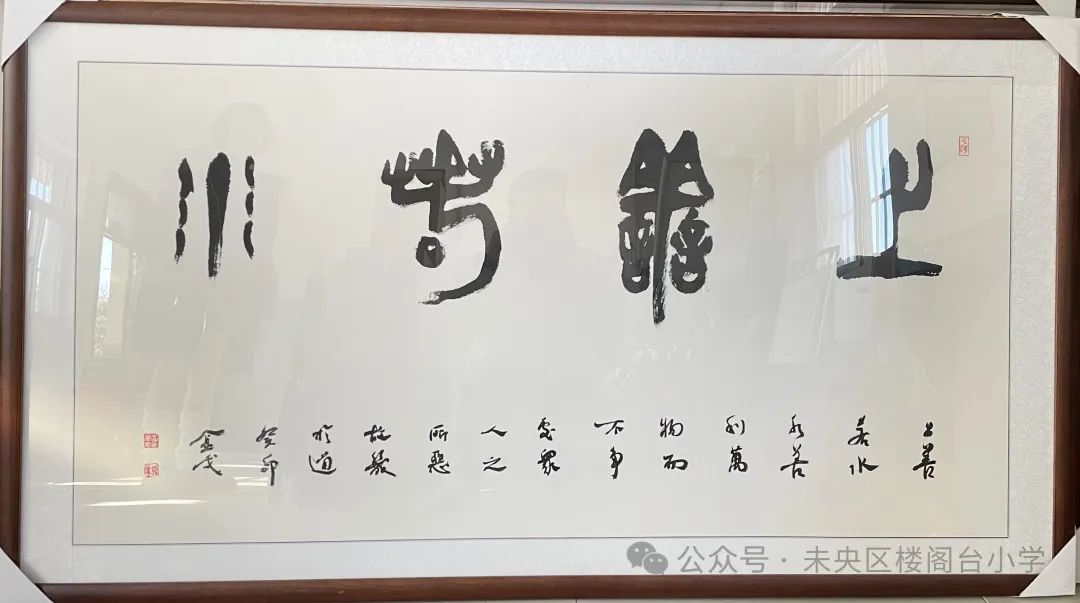 上善若水
上善
若水
水善
利萬
物而
不争
處衆
人之
所惡
故幾
於道
癸卯
金
公众号 · 未央区楼阁台小学